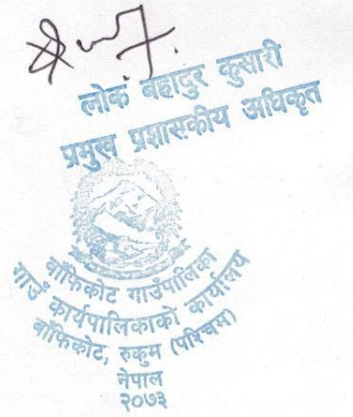 लोक बहादुर कुसारी
प्रमुख प्रशासकीय अधिकृत
बाँफिकोट गाउँपालिका
गाउँ कार्यपालिकाको कार्यालय
बाँफिकोट, रुकुम (पश्चिम)
नेपाल
२०७३